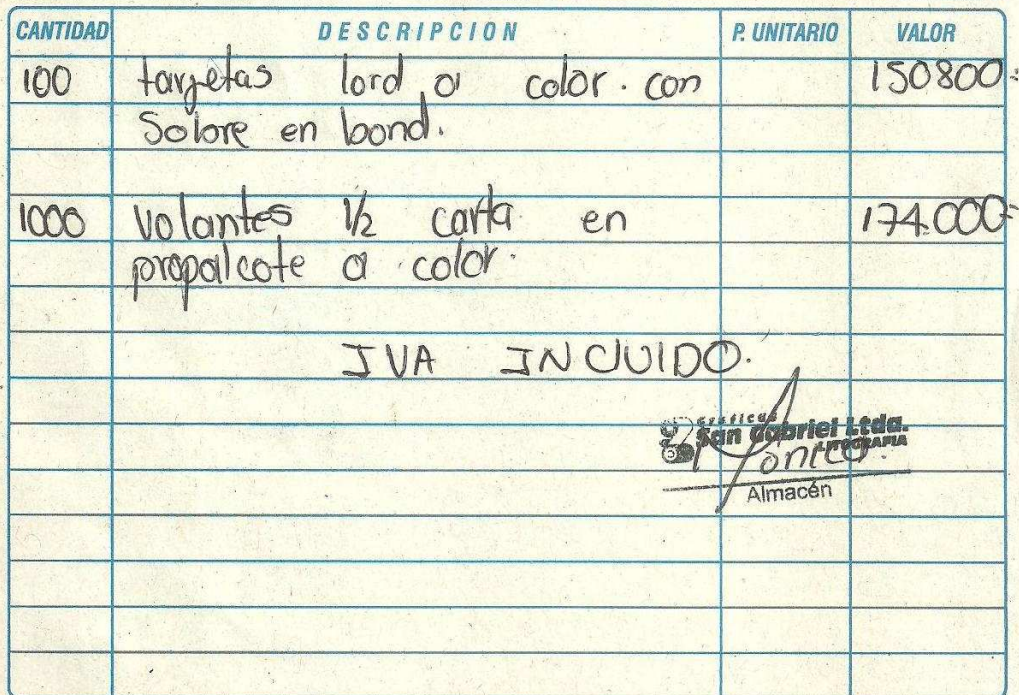 CANTIDAD DESCRIPCION P. UNITARIO VALOR
100 tarjetas lord a color. con 150800=
Sobre en bond.
1000 Volantes 1/2 carta en 174.000=
propalcote a color.
IVA INCLUIDO.
Gráficas
San Gabriel Ltda.
LITOGRAFIA
Almacén